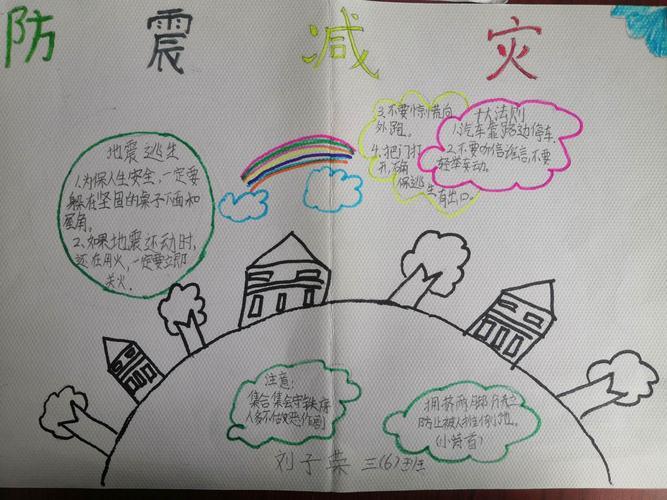 防震减灾
地震逃生
1.为保人生安全,一定要
躲在坚固的桌子下面和
屋角。
2、如果地震还动时,
还在用火,一定要立即
关火.
3.不要惊慌向
外跑。
4.把门打
开,
保逃生有出口。
十大法则
1.汽车靠路边停车.
2.不要听信谣言,不要
轻举车动。
注意:
集合集会守秩序
人多不
拥挤两脚
防止被人推倒地。
刘子荣 三(6)班